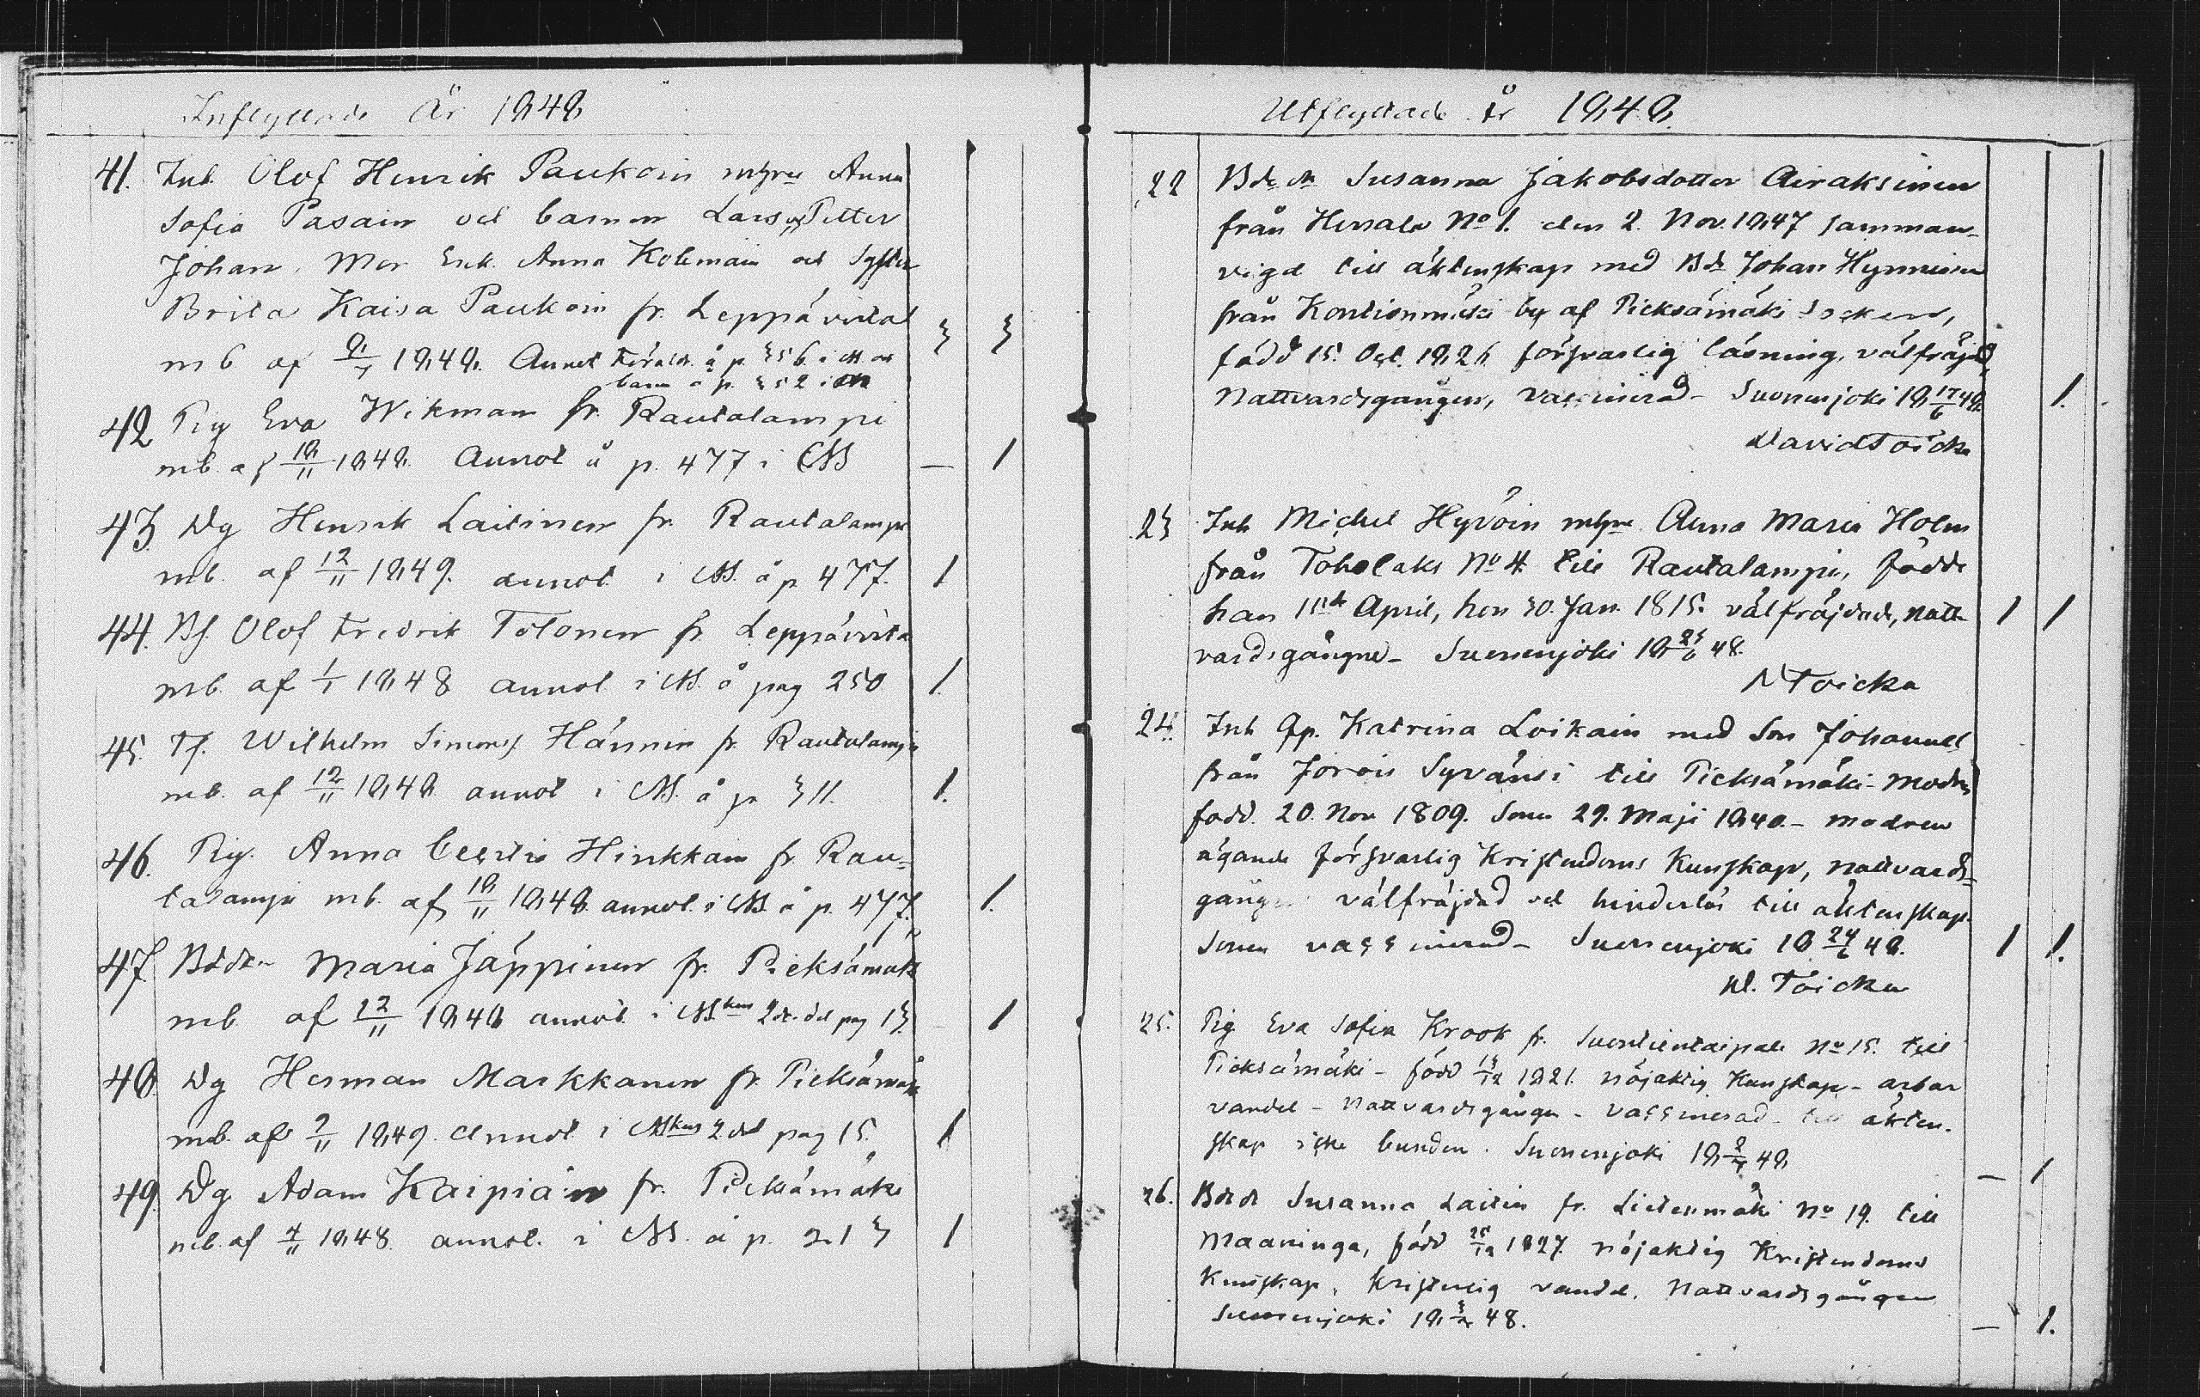 Inflyttade År 1848
41. Inh. Olof Henrik Paukoin m hru Anna
Sofia Pasain och barnen Lars, Petter
Johan, Mor Enk. Anna Kolemain och Syster
Brita Kaisa Paukoin fr. Leppävirta
mb af 9/7 1848. Annot föräldr. å p. 356 i CB och
barn å p. 352 i CB
3 3
42 Pig Eva Wikman fr. Rautalampi
mb. af 18/11 1848. Annot å p. 477 i CB
— 1
43. Dg Henrik Laitinen fr. Rautalampi
mb. af 12/11 1849. annot. i CB. å p 477. 1
44. Bs. Olof Fredrik Tolonen fr. Leppävirta
mb. af 1/1 1848 annot. i CB. å pag 250 1.
45. Tf. Wilhelm Simons. Hännin fr. Rautalampi
mb. af 12/11 1848 annot i CB. å p 311. 1.
46. Pig. Anna Cecilia Hinkkain fr. Rau=
talampi mb. af 18/11 1848 annot. i CB å p. 477. 1.
47. Bdr Maria Jäppinen fr. Pieksämäki
mb af 12/11 1848 annot. i CB 2dr. del pag 13. 1
48. Dg Herman Markkanen fr. Pieksämäki
mb. af 9/11 1849. Annot i CB 2 del pag 15. 1
49. Dg Adam Kaipiain fr. Pieksämäki
mb. af 4/11 1848. annot. i CB. å p. 213 1
Utflyttade År 1848.
22 Bdr Susanna Jakobsdotter Airaksinen
från Herrala No 1. den 2. Nov. 1847 samman-
vigd till äktenskap med Bd Johan Hynninen
från Kontionmäki by af Pieksämäki Socken,
född 15. Oct. 1826 försvarlig läsning, välfräjd,
Nattvardsgången, vaccinerad - Suonenjoki 18 17/6 48. 1.
David Toicka
23 Inh Michel Hyvöin m hru Anna Maria Holm
från Toholaks No 4 till Rautalampi, födde
han 11de April, hon 30. Jan. 1815. välfräjdade, natt-
vardsgångne - Suonenjoki 18 25/6 48. 1 1
D Toicka
24. Inh Qp. Katrina Loikain med Son Johannes
från Jorois Syvänsi till Pieksämäki - Modren
född. 20. Nov 1809. Sonen 29. Maji 1840. - modren
ägande försvarlig Kristendoms Kunskap, nattvards=
gången välfräjdad och hinderlös till äktenskap.
Sonen vaccinerad - Suonenjoki 18 24/6 48. 1 1.
D. Toicka
25. Pig Eva Sofia Krook fr. Suontientaipale No 15. till
Pieksämäki - född 15/12 1821. nöjaktig Kunskap - ärbar
vandel - Nattvardsgången - vaccinerad - till äkten-
skap icke bunden. Suonenjoki 18 2/7 48. — 1
26. Bdr Susanna Laitin fr. Lietenmäki No 19. till
Maaninga, född 25/12 1827. nöjaktig Kristendoms
Kunskap, kristelig vandel, Nattvardsgången
Suonenjoki 18 3/7 48. — 1.